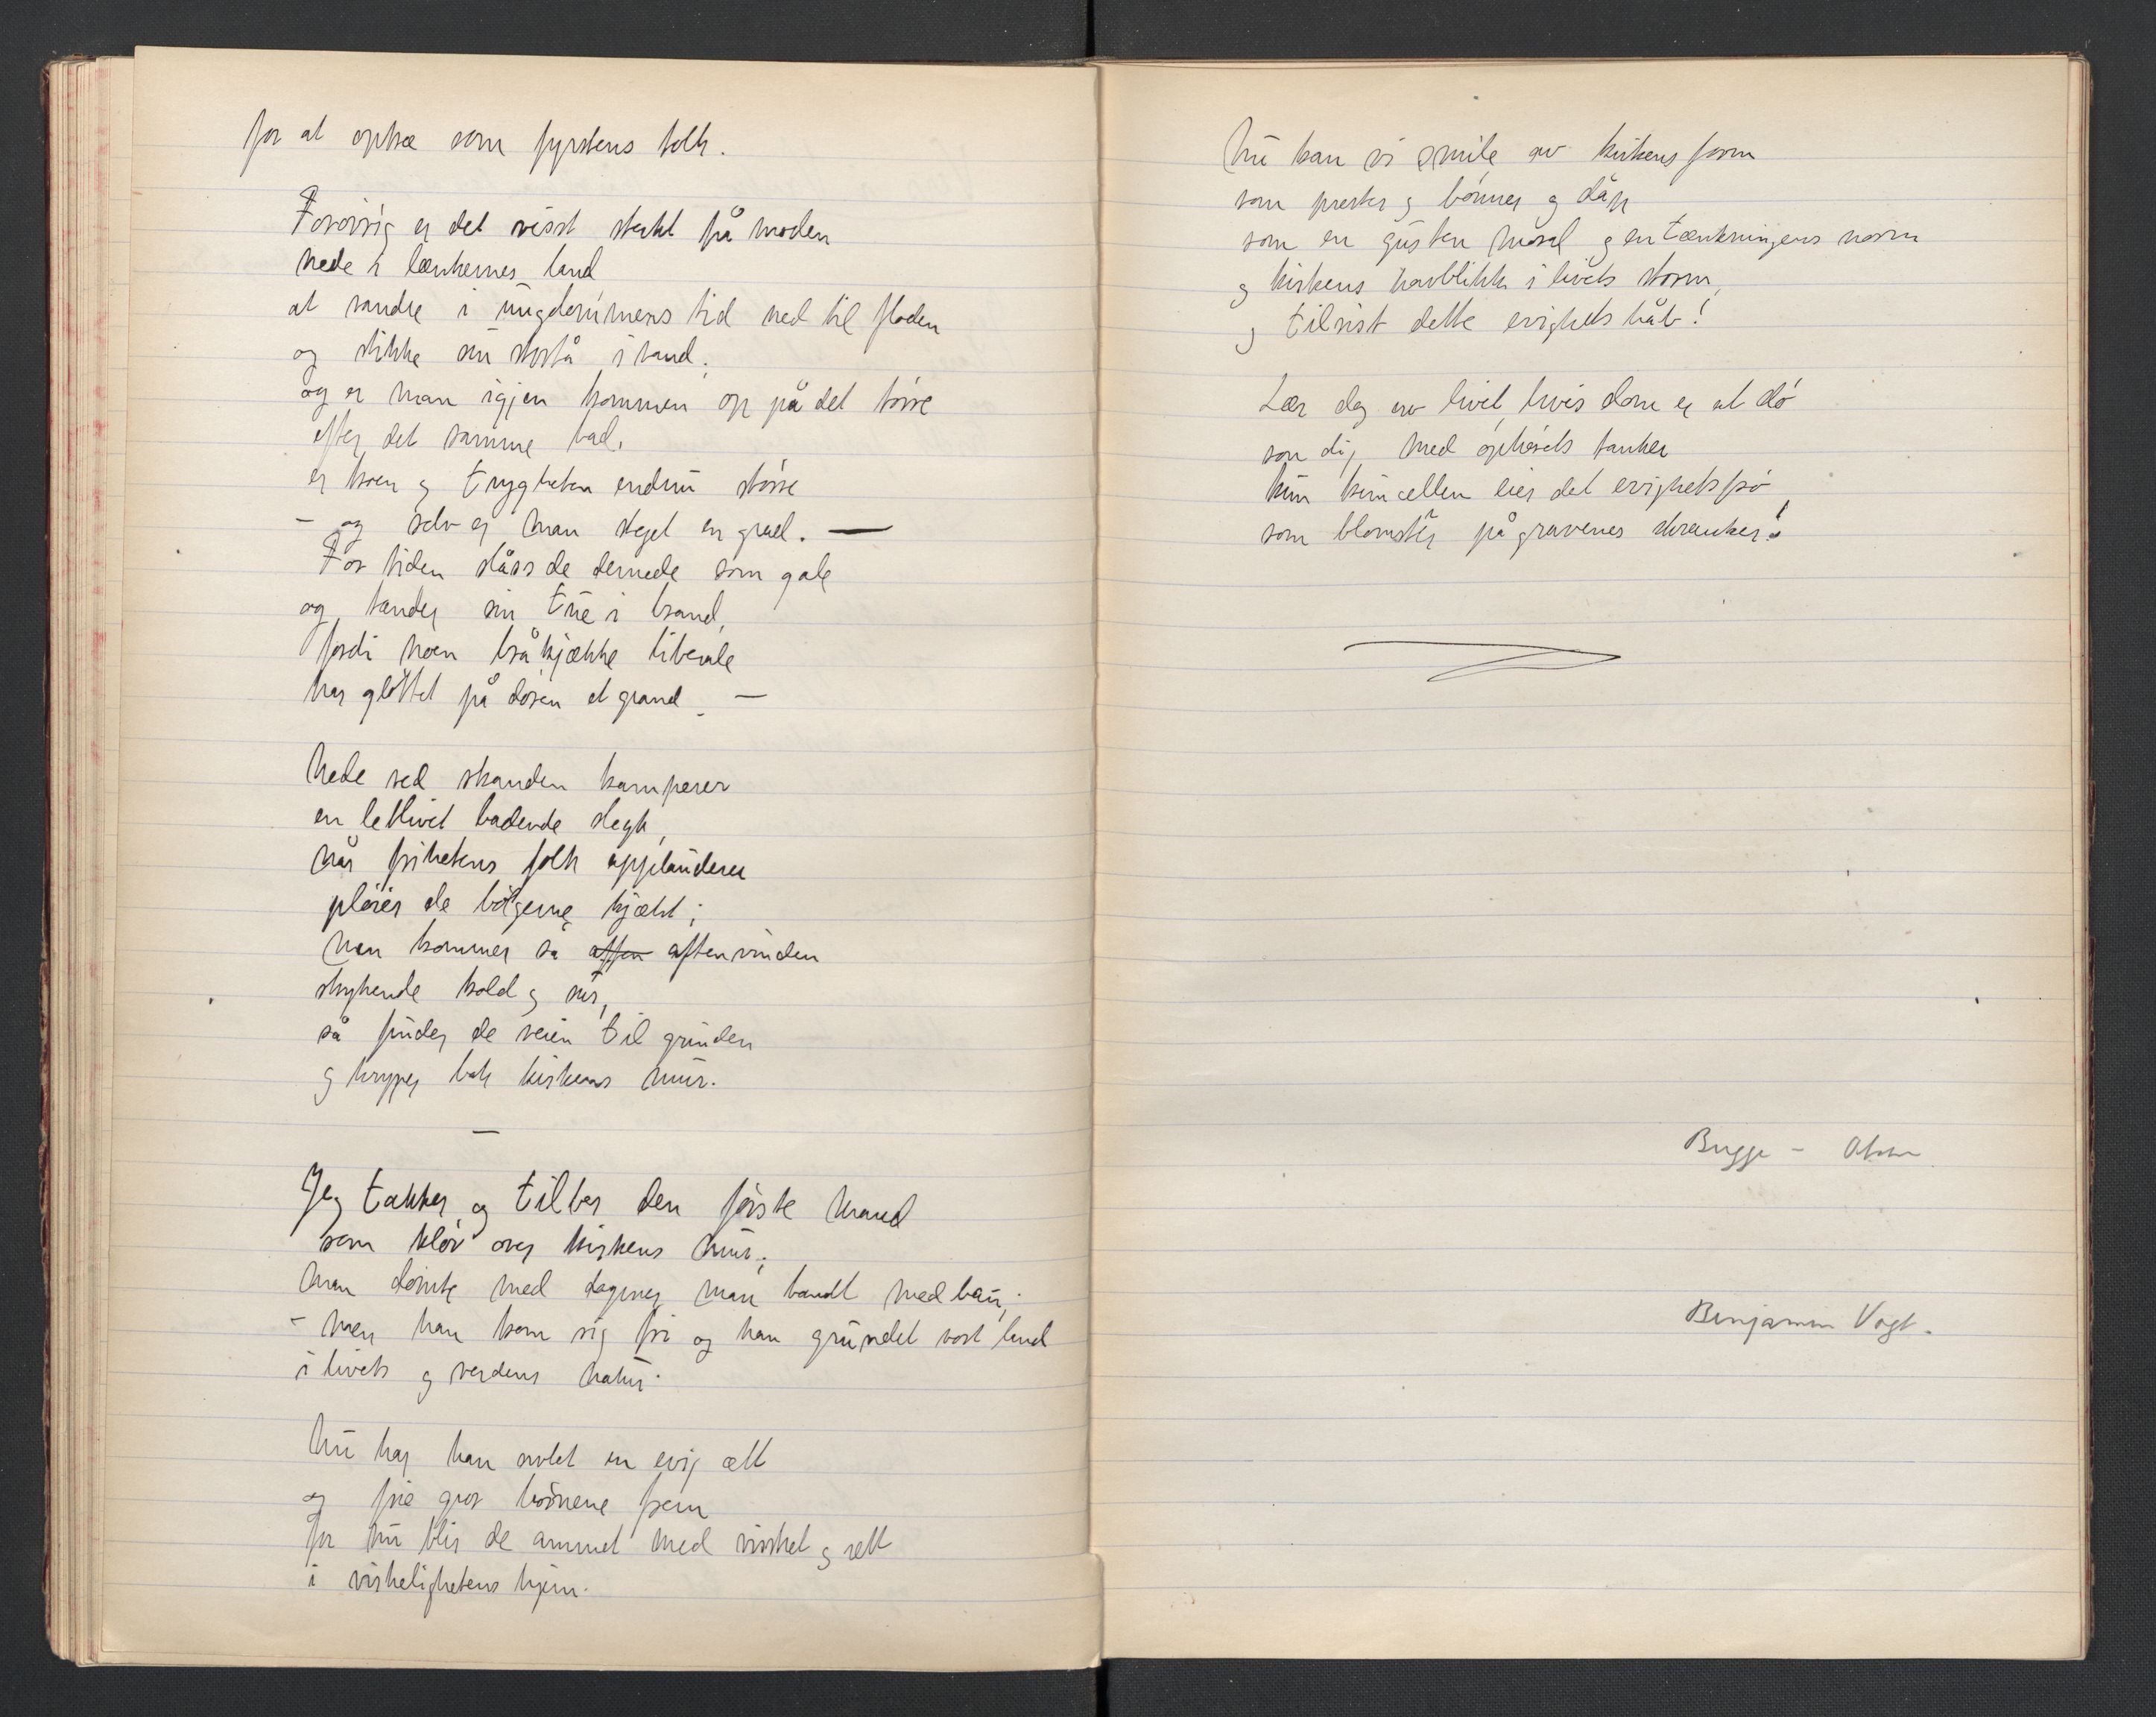 for at optræ som fyrstens folk.
Forøvrig er det visst sterkt på moden
nede i lænkernes land
at vandre i ungdommens tid ned til floden
og stikke sin storetå i vand;
og er man igjen kommen op på det tørre
efter det samme bad,
er troen og trygheten endnu større
– og selv er man steget en grad. —
For tiden slåss de dernede som gale
og tænder sin trie i brand,
fordi noen bråkjække liberale
har gløttet på døren et grand. –
Nede ved stranden kamperer
en letlivet badende slegt,
når frihetens folk applauderer
pløier de bølgerne kjækt;
men kommer så aften aftenvinden
strykende kold og sur,
så finder de veien til grunden
og kryper bak kirkens mur.
–
Jeg takker og tilber den første mand
som kløv over kirkens mur;
man dømte med dogmer, man bandt med band;
– men han kom sig fri og han grundet vort land
i livets og verdens natur.
Nu har han avlet en evig ætt
og frie gror børnene frem
for nu blir de ammet med visshet og rett
i virkelighetens hjem.
Nu kan vi smile av kirkens form
som prester og bønner og dåp
som en gusten moral og en tænkningens norm
og kirkens havblikk i livets storm,
og tilsist dette evighets håb!
Lær dog av livet, hvis dom er at dø
som dig, med ophørets tanker
kun kimcellen eier det evighetsfrø
som blomster på gravenes skranker!
Bugge – Olsen
Benjamin Vogt.